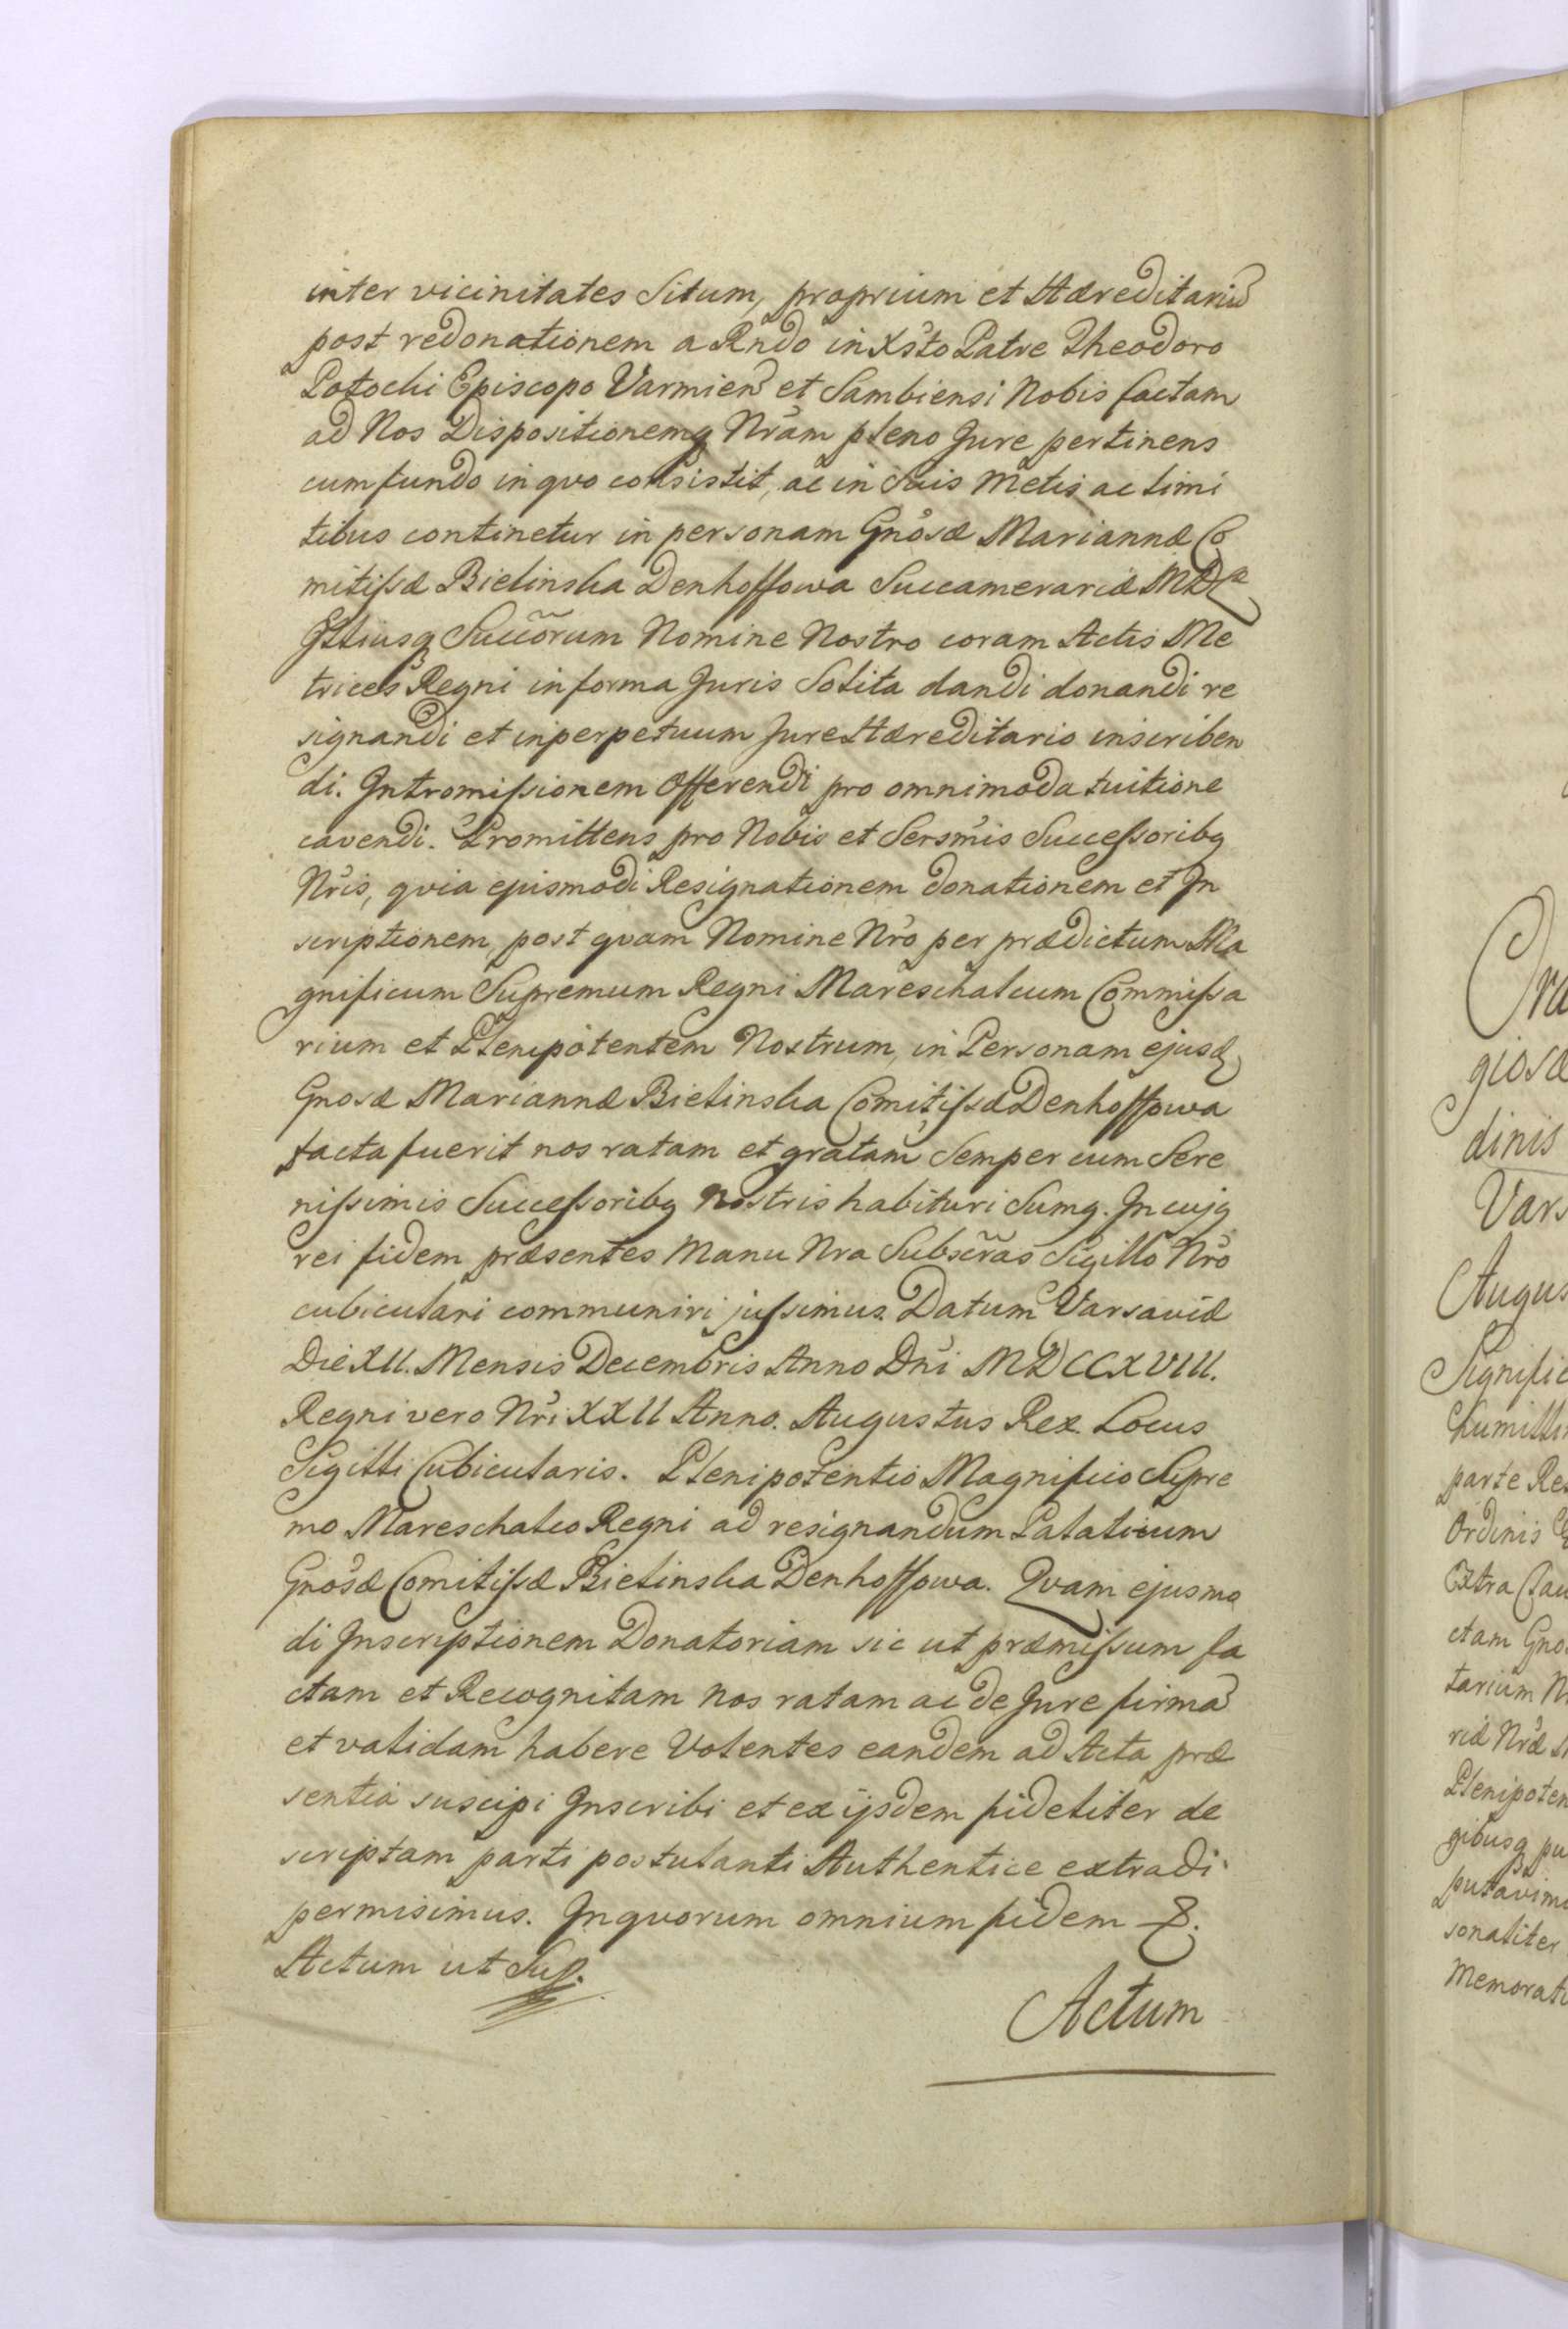 inter vicinitates Situm, proprium et Hæreditariũ
post redonationem a Rndo in Xsto Patre Theodoro
Potocki Episcopo Varmien et Sambiensi Nobis factam
ad Nos Dispositionemq Nram pleno Jure pertinens
cum fundo in qvo consistit, ac in Suis Metis ac limi
tibus continetur in personam Gnosæ Mariannæ Co
mitissæ Bielinska Denhoffowa Succamerariæ MDL
Illiusq Succõrum Nomine Nostro coram Actis Me
trices Regni in forma Juris Solita dandi donandi re
signandi et in perpetuum Jure Hæreditario inscriben
di. Intromissionem Offerendi pro omnimoda tuitione
cavendi. Promittens pro Nobis et Sersmis Successoribq
Nris, qvia ejusmodi Resignationem donationem et In
scriptionem, post qvam Nomine Nro per prædictum Ma
gnificum Supremum Regni Mareschalcum Commissa
rium et Plenipotentem Nostrum, in Personam ejusd
Gnosæ Mariannæ Bielinska Comitissæ Denhoffowa
facta fuerit nos ratam et gratam Semper cum Sere
nissimis Successoribq Nostris habituri Sumq. In cujq
rei fidem præsentes Manu Nra Subscras Sigillo Nro
cubiculari communiri jussimus. Datum Varsaviæ
Die XII. Mensis Decembris Anno Dni MDCCXVIII.
Regni vero Nri XXII Anno. Augustus Rex. Locus
Sigilli Cubicularis. Plenipotentio Magnifico Supre
mo Mareschalco Regni ad resignandum Palatium
Gnosæ Comitissæ Bielinska Denhoffowa. Qvam ejusmo
di Inscriptionem Donatoriam sic ut præmissum fa
ctam et Recognitam nos ratam ac de Jure firmã
et validam habere Volentes eandem ad Acta præ
sentia suscipi Inscribi et ex ijsdem fideliter de
scriptam parti postulanti Authentice extradi
permisimus. In qvorum omnium fidem &.
Actum ut Sup.
Actum
giosæ
dinis
Vars
Augus
Signific
humilli
parte Re
Ordinis
Extra
ctam Gno
tarium N
riæ Nræ
Plenipoten
gibusq pu
putavim
sonaliter
Memorat